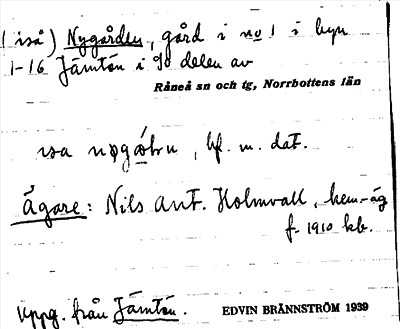 ( iså ) Nygården, gård i no 1 i byn
1-16 Jämtön i So delen av
Råneå sn och tg, Norrbottens län
isa nygåɷn, bf. m. dat.
Ägare: Nils Ant. Holmvall, hem.-äg
f. 1910 kb.
Uppg. från Jämtön.
EDVIN BRÄNNSTRÖM 1939